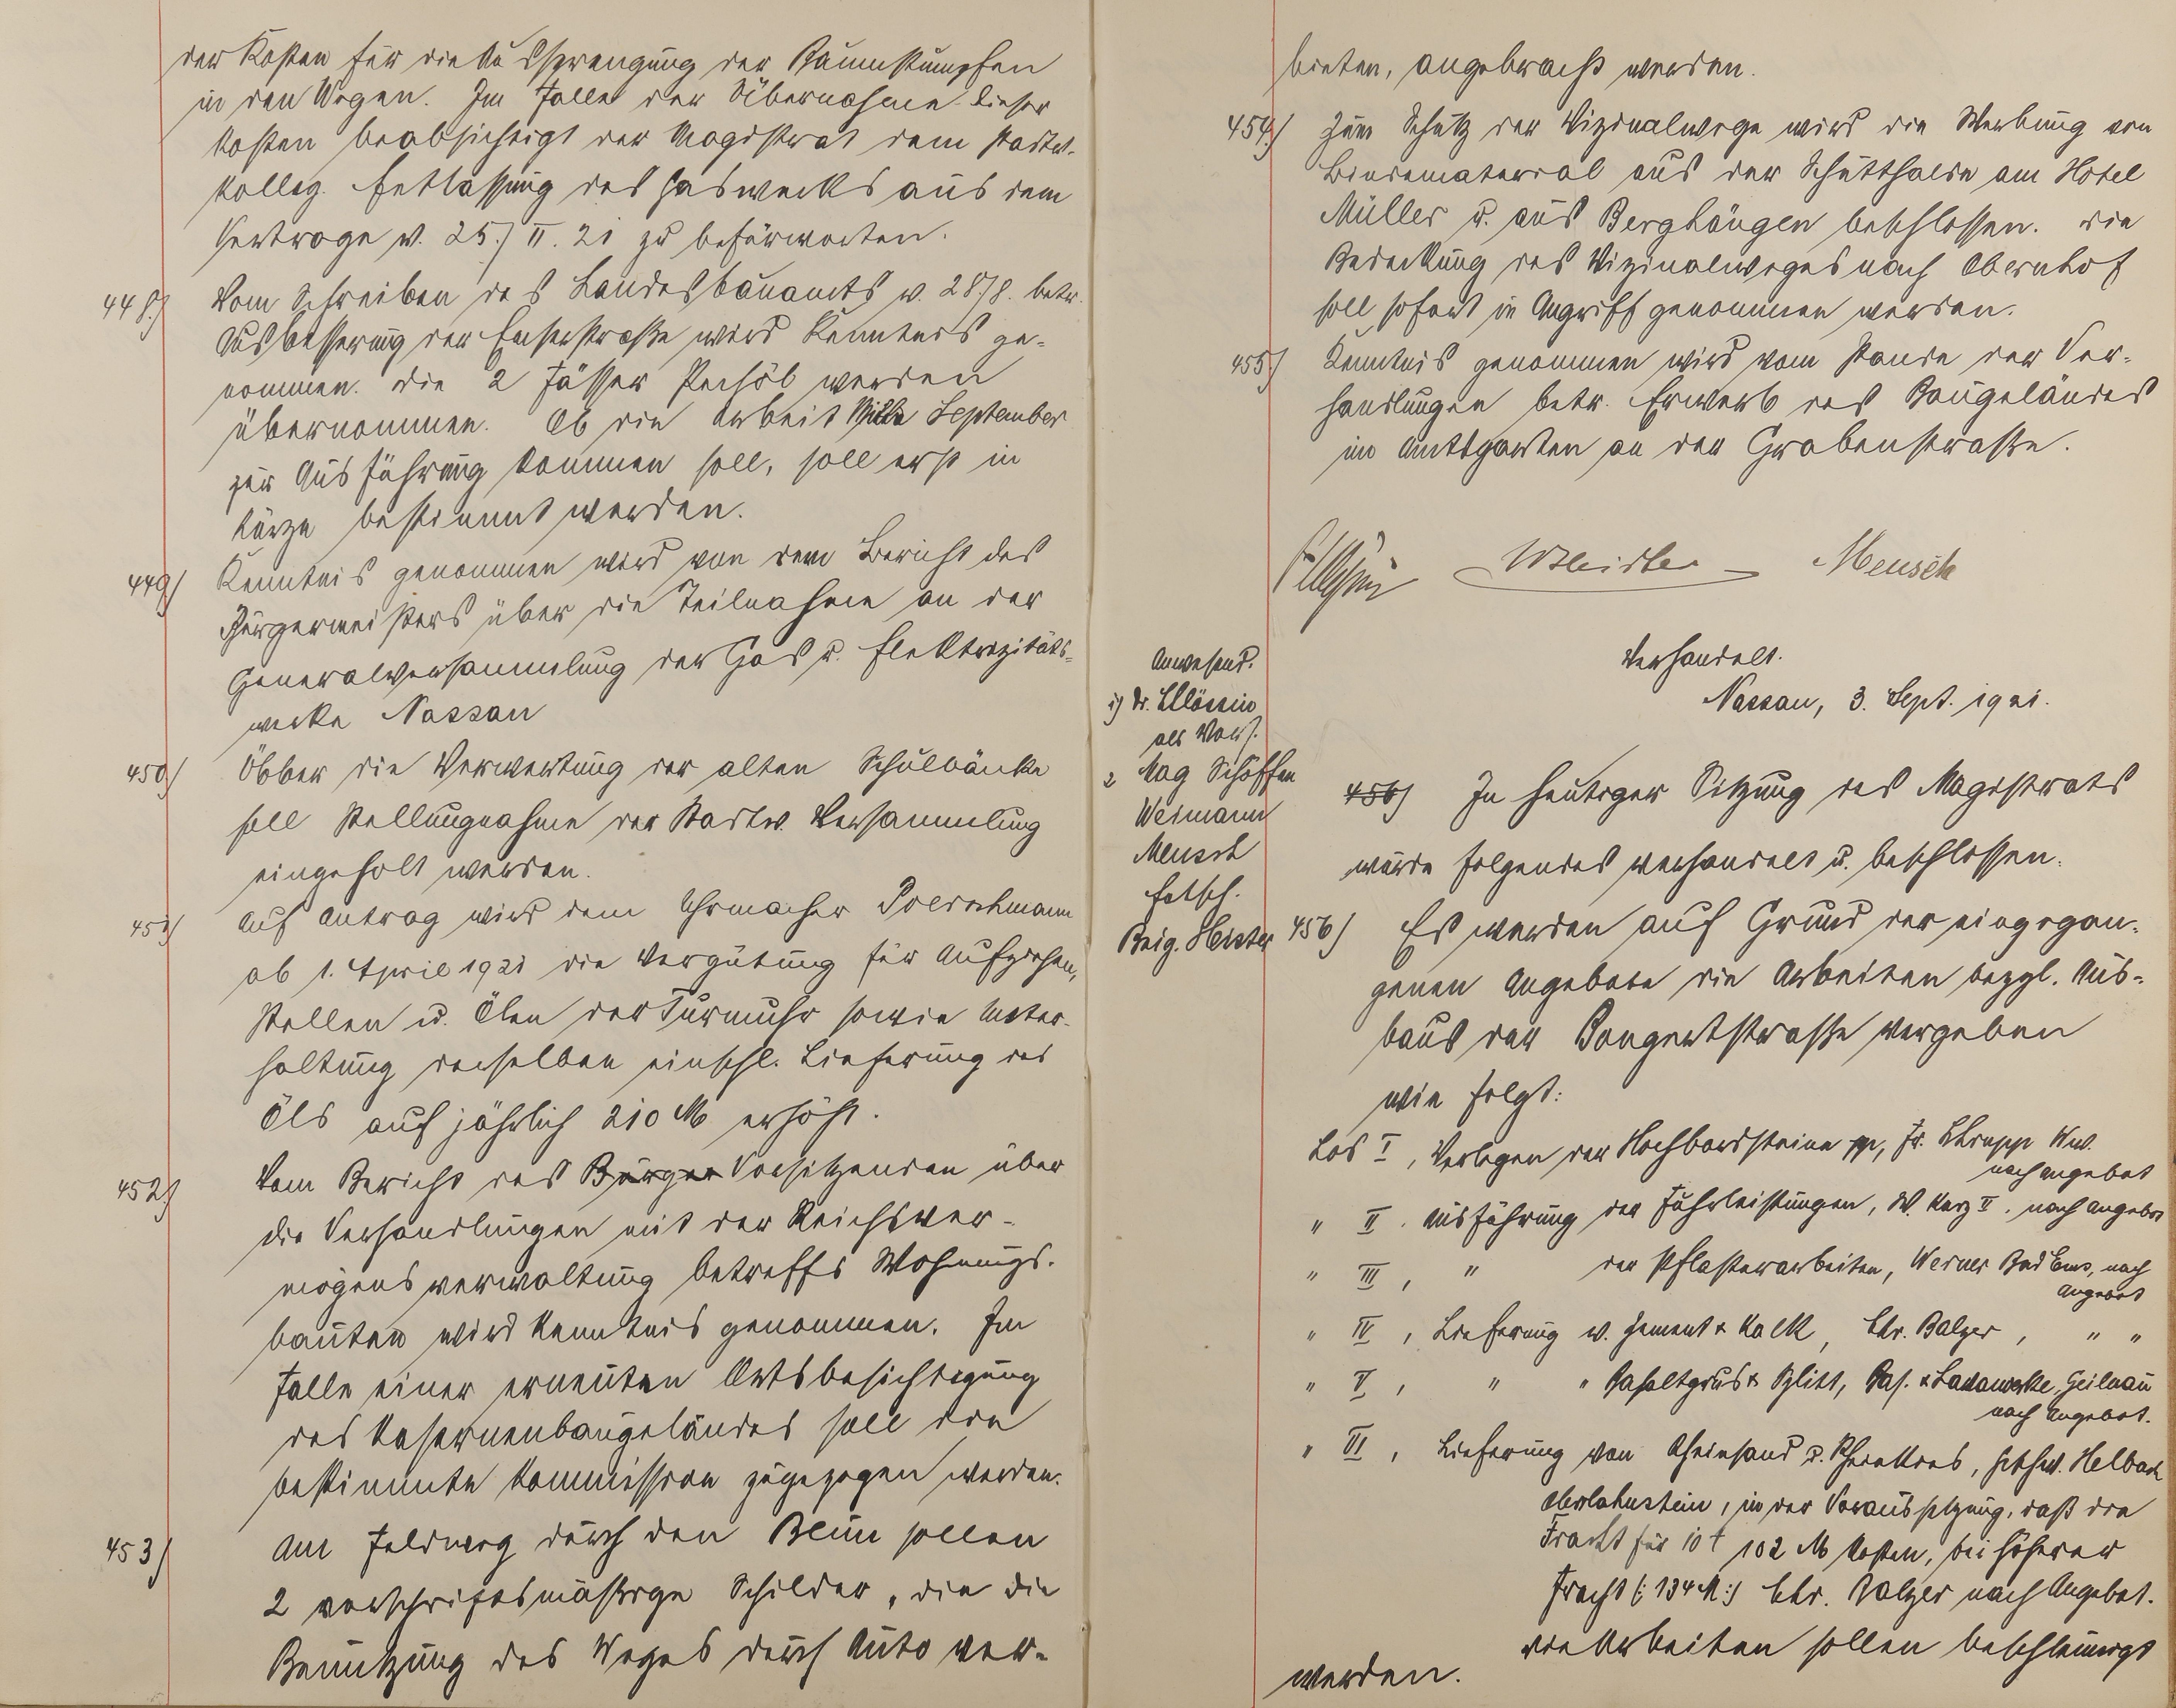 der Kosten für die Aussprengung der Baumstumpfen
in den Wegen. Im Falle der Übernahme dieser
Kosten beabsichtigt der Magistrat dem Stadtv.
Kolleg. Entlassung des Gaswerks aus dem
Vertrage v. 25./II. 21 zu befürworten.
448.) Vom Schreiben des Landesbauamts v. 28./8. betr.
Ausbesserung der Emserstraße wird Kenntnis ge-
nommen. Die 2 Fässer Pechöl werden
übernommen. Ob die Arbeit Mitte September
zur Ausführung kommen soll, soll erst in
Kürze bestimmt werden.
449) Kenntnis genommen wird von dem Bericht des
Bürgermeisters über die Teilnahme an der
Generalversammlung der Gas u. Elektrizitäts-
werke Nassau
450) Über die Verwertung der alten Schulbänke
soll Stellungnahme der Stadtv. Versammlung
eingeholt werden.
451) Auf Antrag wird dem Uhrmacher Poerschmann
ab 1. April 1921 die Vergütung für Aufziehen,
Stellen u. Ölen der Turmuhr sowie Unter-
haltung derselben einschl. Lieferung des
Öls auf jährlich 210 M erhöht.
452) Vom Bericht des Bürger Vorsitzenden über
die Verhandlungen mit der Reichsver-
mögensverwaltung betreffs Wohnungs-
bauten wird Kenntnis genommen. Im
Falle einer erneuten Ortsbesichtigung
des Kasernenbaugeländes soll die
bestimmte Kommission zugezogen werden.
453) Am Feldweg durch den Beun sollen
2 vorschriftsmäßige Schilder, die die
Benutzung des Weges durch Auto ver-
bieten, angebracht werden.
454.) Zum Schutz der Vizinalwege wird die Werbung von
Bindematerial aus der Schutthalde am Hotel
Müller u. aus Berghängen beschlossen. Die
Bedeckung des Vizinalweges nach Obernhof
soll sofort in Angriff genommen werden.
455) Kenntnis genommen wird vom Stande der Ver-
handlungen betr. Erwerb des Baugeländes
im Amtsgarten an der Grabenstraße.
Mensch
Verhandelt.
Nassau, 3. Sept. 1921.
Anwesend.
1) Dr.
als Vors.
2 Mag Schöffen
Weimann
Mensch
Beig. Heister
456) In heutiger Sitzung des Magistrats
wurde folgendes verhandelt u. beschlossen.
456) Es werden auf Grund der eingegan-
genen Angebote die Arbeiten bezgl. Aus-
baus der Bongertstraße vergeben
wie folgt:
Los I, Verlegen der Hochbordsteine pp, Fr. Ww.
nach Angebot
" II. Ausführung der Fuhrleistungen, W. Kurz II. nach Angebot
" III, " der Pflasterarbeiten, Werner Bad Ems, nach
Angebot
" IV, Lieferung v. Zement & Kalk, Chr. Balzer, " "
" V, " " Basaltgrus & Splitt, Bas. & Lavawerke, Geilnau
nach Angebot.
" VI, Lieferung von Rheinsand u. Rheinkies, Helbach
Oberlahnstein, in der Voraussetzung, daß die
Fracht für 10 t 102 M kosten, bei höherer
Fracht (: 134 M :) Chr. Balzer nach Angebot.
Die Arbeiten sollen beschleunigt
werden.